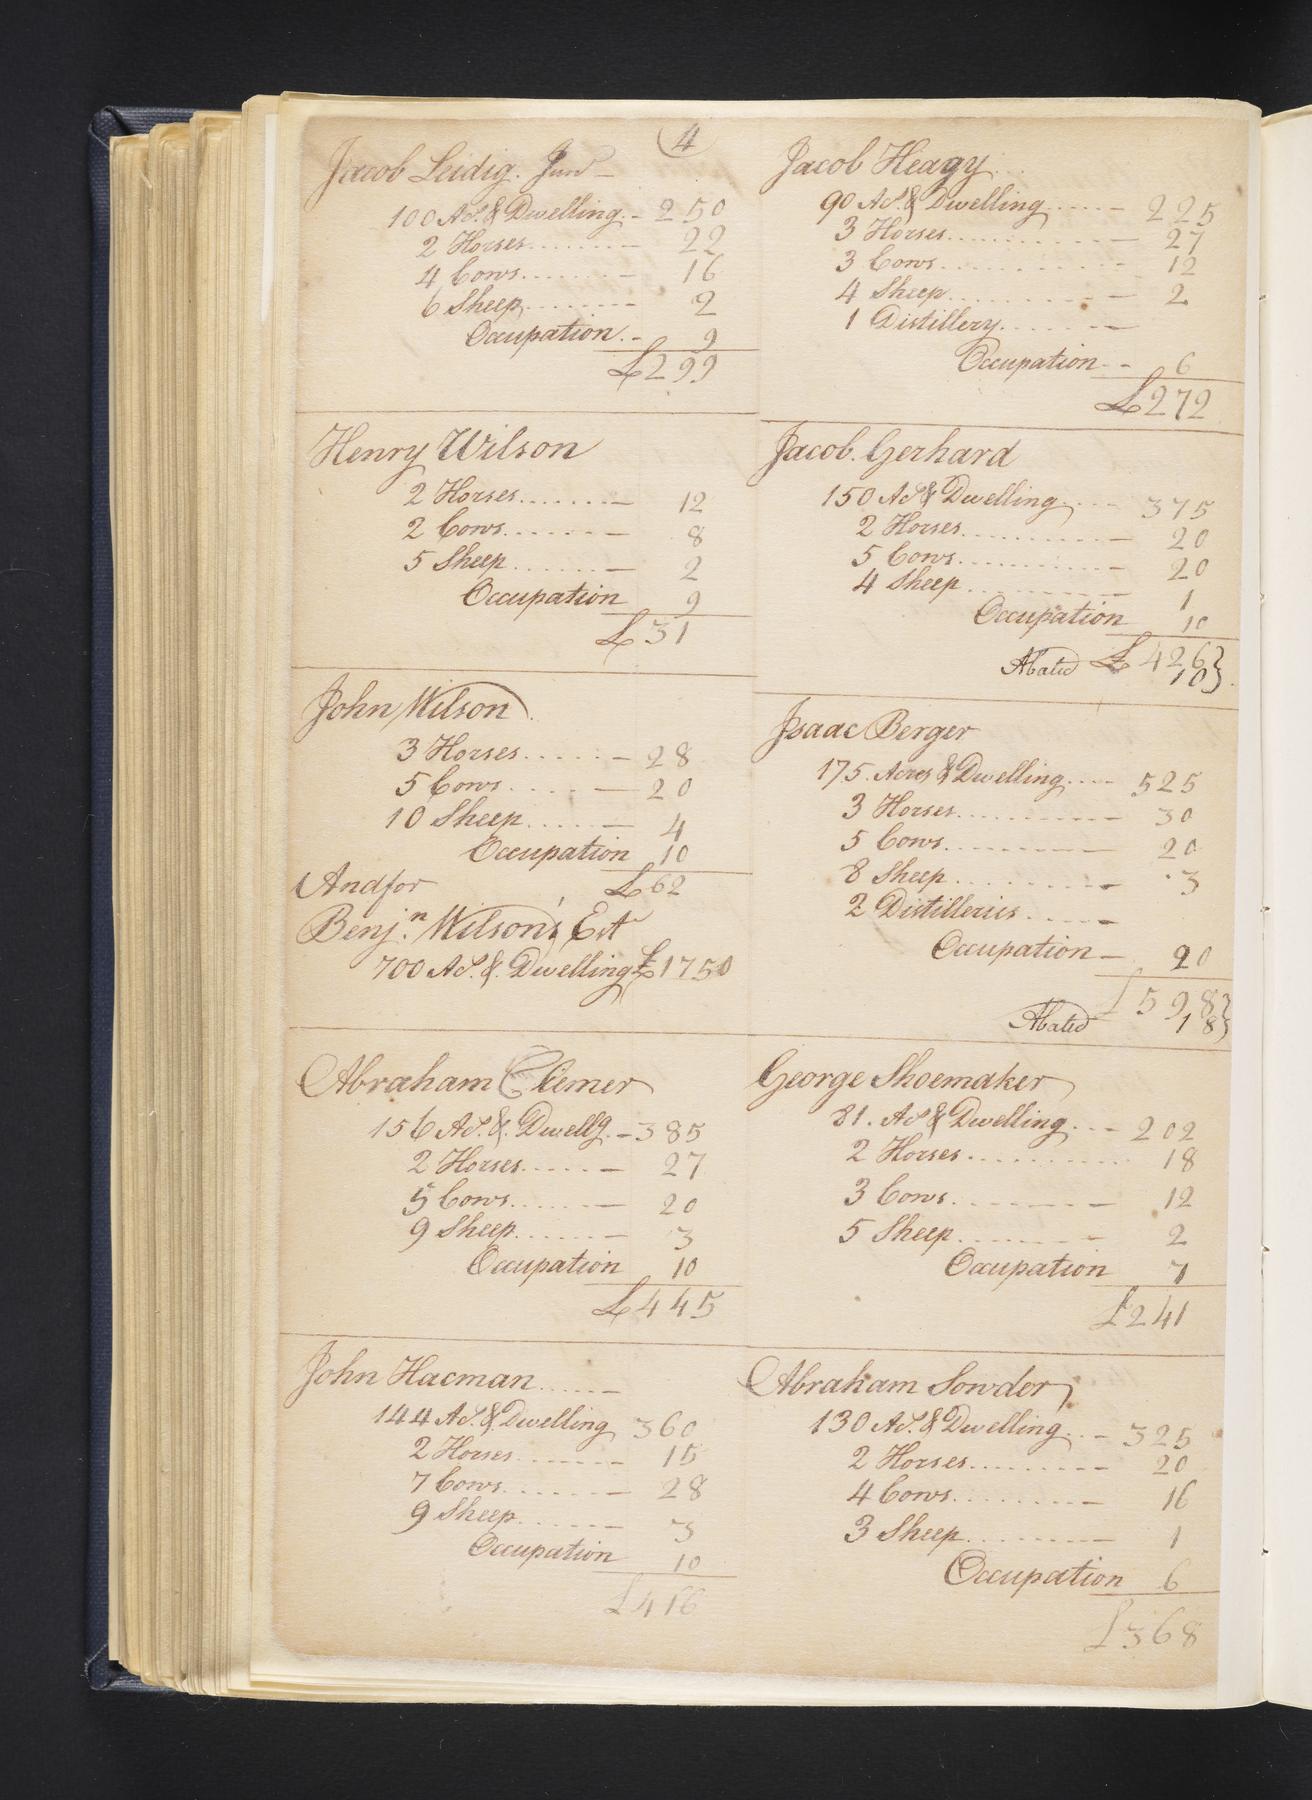 4
Jacob Leidig. Junr
100 As. & Dwelling 250
2 Horses 22
4 Cows 16
6 Sheep 2
Occupation 9
£299
Henry Wilson
2 Horses 12
2 Cows 8
5 Sheep 2
Occupation 9
£31
John Wilson
3 Horses 28
5 Cows 20
10 Sheep 4
Occupation 10
£62
And for
Benj.n Wilson's Est
700 As. & Dwelling £1750
Abraham Cliemer
156 As. & Dwellg. 385
2 Horses 27
5 Cows 20
9 Sheep 3
Occupation 10
£445
John Hacman
144 As. & Dwelling 360
2 Horses 15
7 Cows 28
9 Sheep 3
Occupation 10
£416
Jacob Heagy
90 As. & Dwelling 225
3 Horses 27
3 Cows 12
4 Sheep 2
1 Distillery
Occupation 6
£272
Jacob. Gerhard
150 As. & Dwelling 375
2 Horses 20
5 Cows 20
4 Sheep 1
Occupation 10
£426
Abated 10
Isaac Berger
175. Acres & Dwelling 525
3 Horses 30
5 Cows 20
8 Sheep 3
2 Distilleries
Occupation 20
£598
Abated 18
George Shoemaker
81. As. & Dwelling 202
2 Horses 18
3 Cows 12
5 Sheep 2
Occupation 7
£241
Abraham Sowder
130 As. & Dwelling 325
2 Horses 20
4 Cows 16
3 Sheep 1
Occupation 6
£368